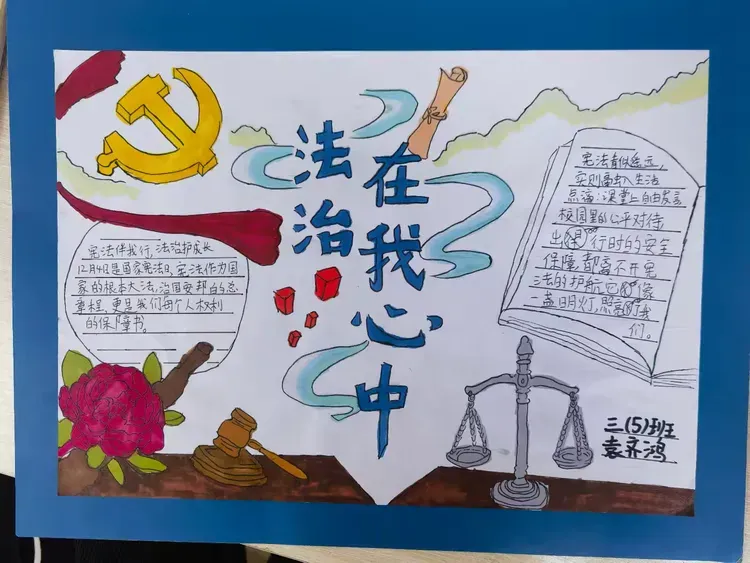 法治
在我心中
宪法伴我行,法治护成长
12月4日是国家宪法日,宪法作为国
家的根本大法,治国安邦的总
章程,更是我们每个人权利
的保障书。
宪法看似遥远,
实则融入生活
点滴:课堂上自由发言
校园里的公平对待
出 行时的安全
保障,都离不开宪
法的护航,它 像
一盏明灯,照亮 我
们。
三(5)班
袁乔鸿